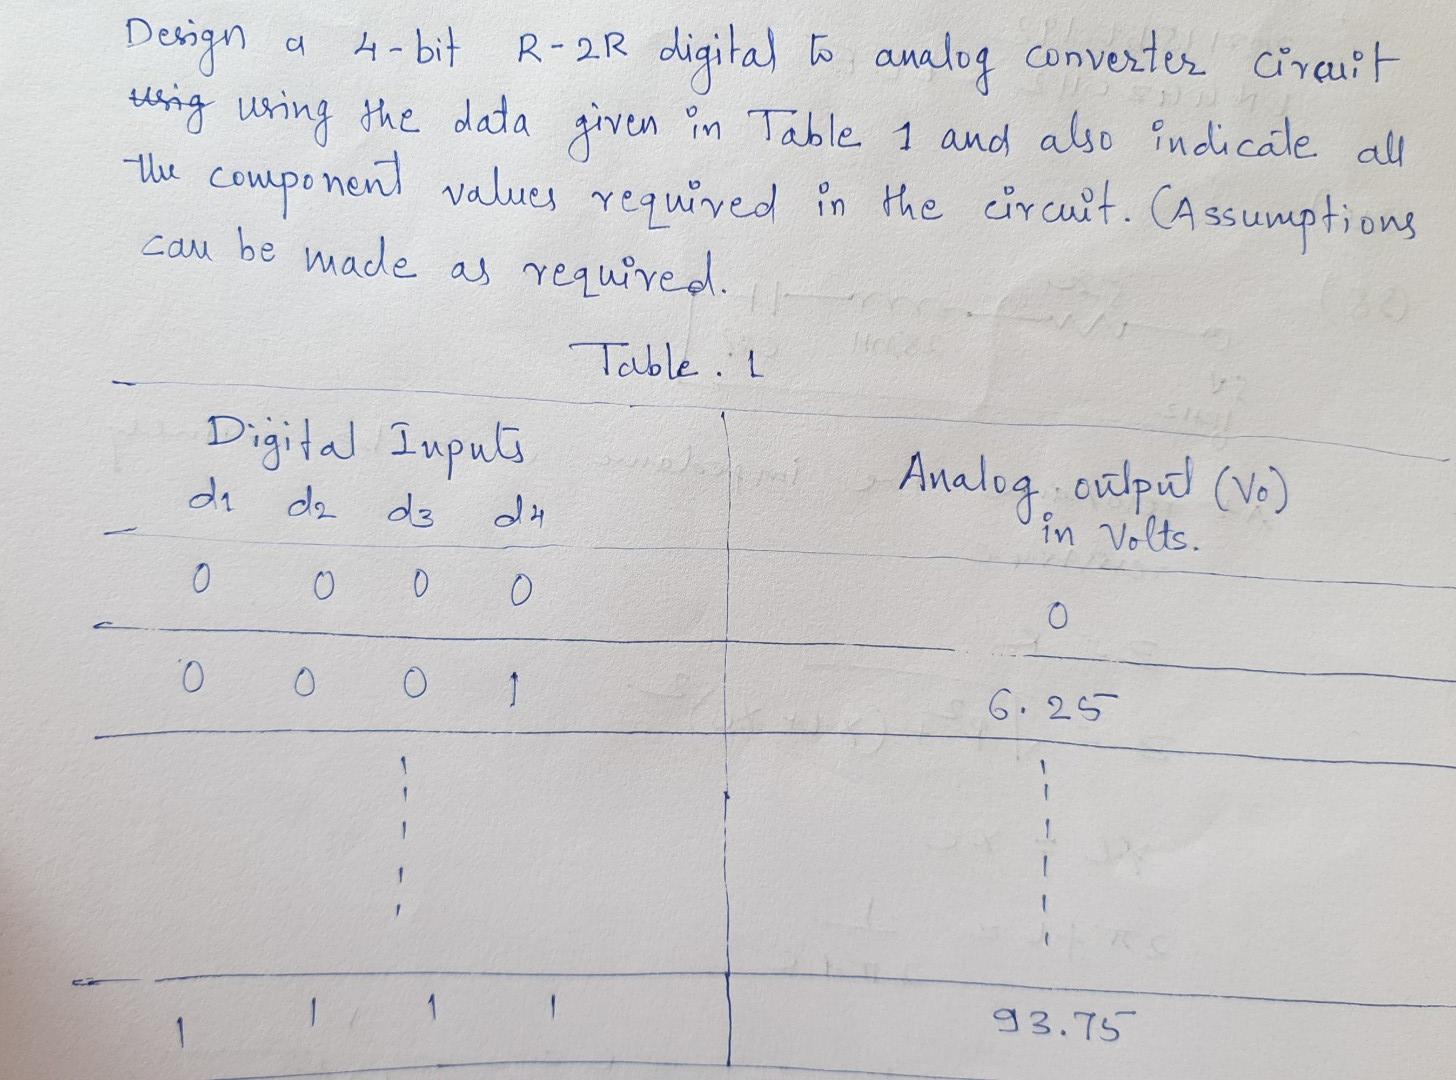 Design a 4-bit R-2R digital to analog converter circuit
usig using the data given in Table 1 and also indicate all
the component values required in the circuit. (Assumptions
can be made as required.
Table. 1
Digital Inputs
Analog output (Vo)
in Volts.
d1 d2 d3 d4
0 0 0 0 0
0 0 0 1 6.25
1 1 1 1 93.75